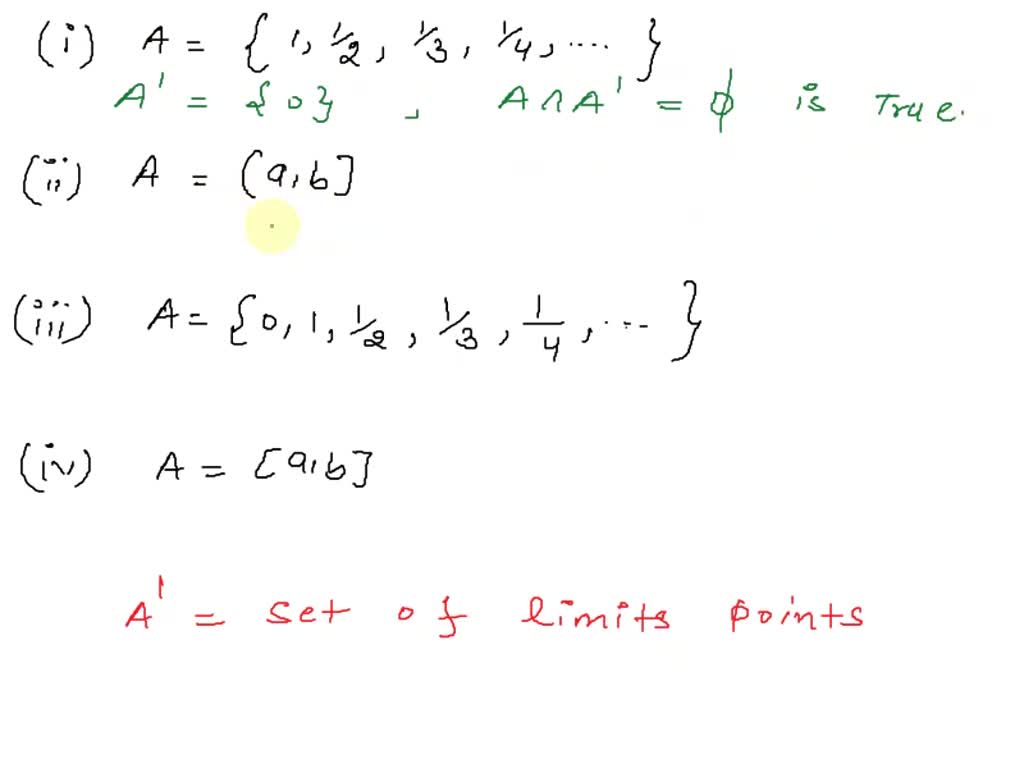 (i) A = { 1, 1/2, 1/3, 1/4, .... }
A' = {0} , A∩A' = ϕ is True.
(ii) A = (a,b]
(iii) A = {0, 1, 1/2, 1/3, 1/4, ... }
(iv) A = [a,b]
A' = set of limits points